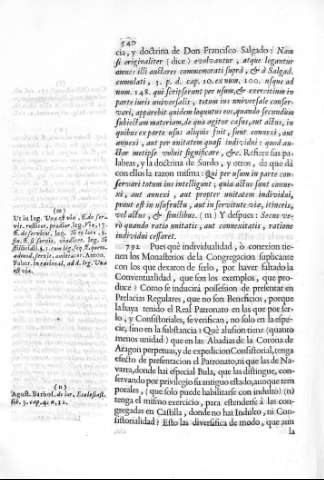 540
cia, y doctrina de Don Francisco Salgado: Nam
si originaliter (dice) evolvantur, atque legantur
omnes illi auctores commemorati suprà, & à Salgad.
cumulati, 3. p. d. cap. 10. ex num. 100. usque ad
num. 148. qui scripserunt per usum, & exercitium in
parte iuris universalis, totum ius universale conser-
vari, apparebit quidem loquutos eos, quando secundùm
subiectam materiam, de qua agitur casus, aut actus, in
quibus ex parte usus aliquis fuit, sunt connexi, aut
annexi, aut per unitatem quasi individui: quod au-
ctor voluit significare, &c. Refiere sus pa-
labras, y la doctrina de Surdo, y otros, de que dà
con ellos la razon misma: Qui per usum in parte con-
servari totum ius intelligunt; quia actus sunt conne-
xi, aut annexi, aut propter unitatem individui,
prout est in usufructu, aut in servitute viæ, itineris,
vel actus, & similibus. (m) Y despues: Secus ve-
rò quando ratio unitatis, aut connexitatis, ratione
individui cessaret.
792 Pues què individualidad, ò conexion tie-
nen los Monasterios de la Congregacion suplicante
con los que dexaron de serlo, por haver faltado la
Conventualidad, que son los exemplos, que pro-
duce? Como se inducirà possession de presentar en
Prelacias Regulares, que no son Beneficios, porque
la haya tenido el Real Patronato en las que por ser-
lo, y Consistoriales, se evidencian, no solo en la espe-
cie, sino en la substancia? Què alusion tiene (quanto
menos unidad) que en las Abadias de la Corona de
Aragon perpetuas, y de expedicion Consistorial, tenga
efecto de presentacion el Patronato, ni que las de Na-
varra, donde hai especial Bula, que las distingue, con-
servando por privilegio su antiguo estado, aunque tem-
porales, (que solo puede habilitarse con indulto) (n)
tenga el mismo exercicio, para estenderse à las con-
gregadas en Castilla, donde no hai Indulto, ni Con-
sistorialidad? Esto las diversifica de modo, que aun
la
(m)
Ut in leg. Una est via, ff. de ser-
(n)
Agust. Barbos. de iur. Ecclesiast.
lib. 3. cap. 4. n. 12.